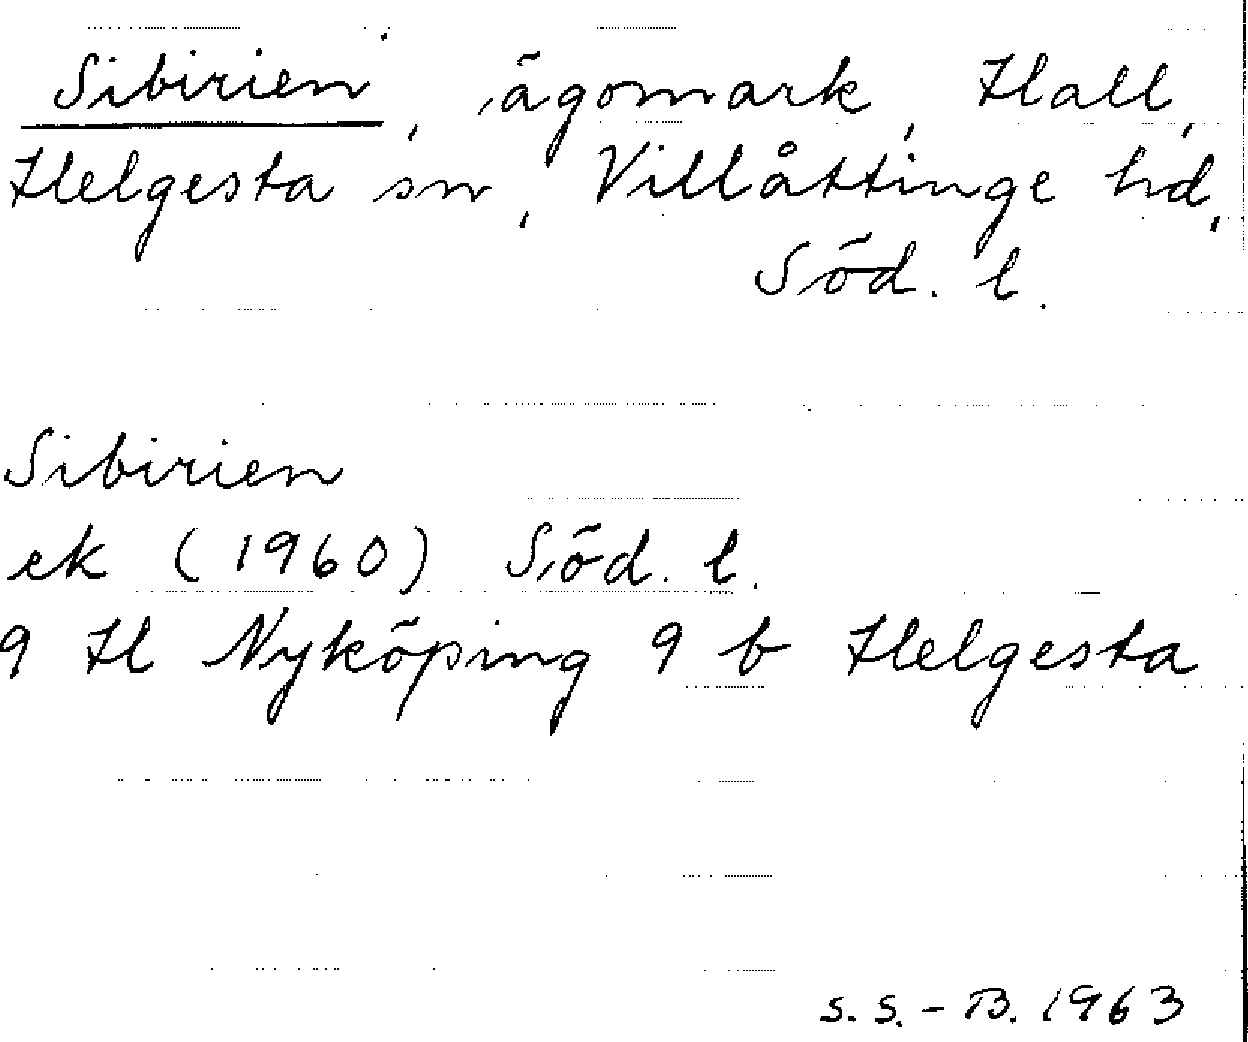 Sibirien, ägomark, Hall,
Helgesta sn, Villåttinge hd,
Söd. l.
Sibirien
ek (1960) Söd. l.
9 H Nyköping 9 b Helgesta
S. S. - B. 1963